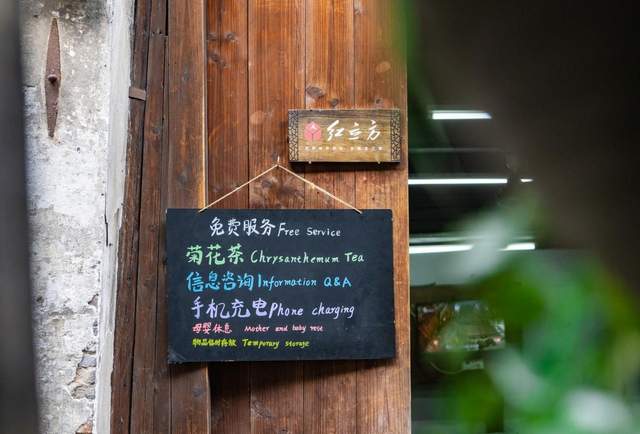 红立方
免费服务 Free Service
菊花茶 Chrysanthemum Tea
信息咨询 Information Q&A
手机充电 Phone charging
母婴休息 Mother and baby rest
物品临时存放 Temporary storage